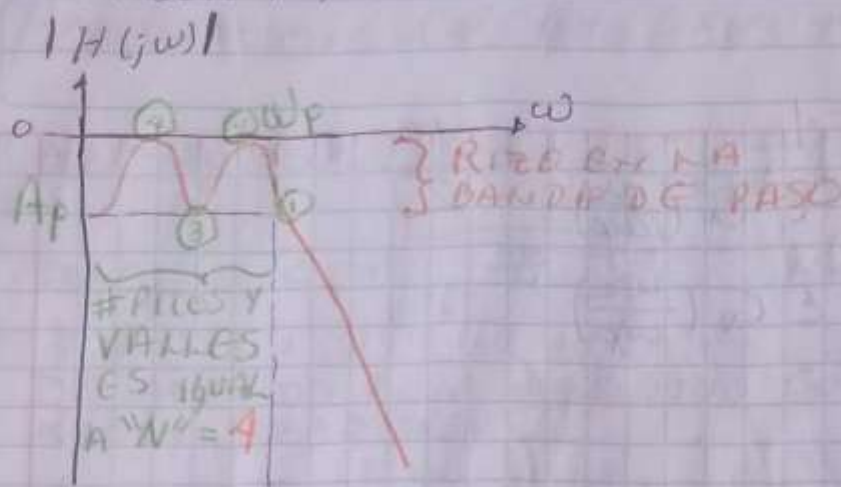 |H(jω)|
0
ω
④
②
ωp
Ap
③
①
} RIZO EN LA
BANDA DE PASO
# PICOS Y
VALLES
ES IGUAL
A "N" = 4